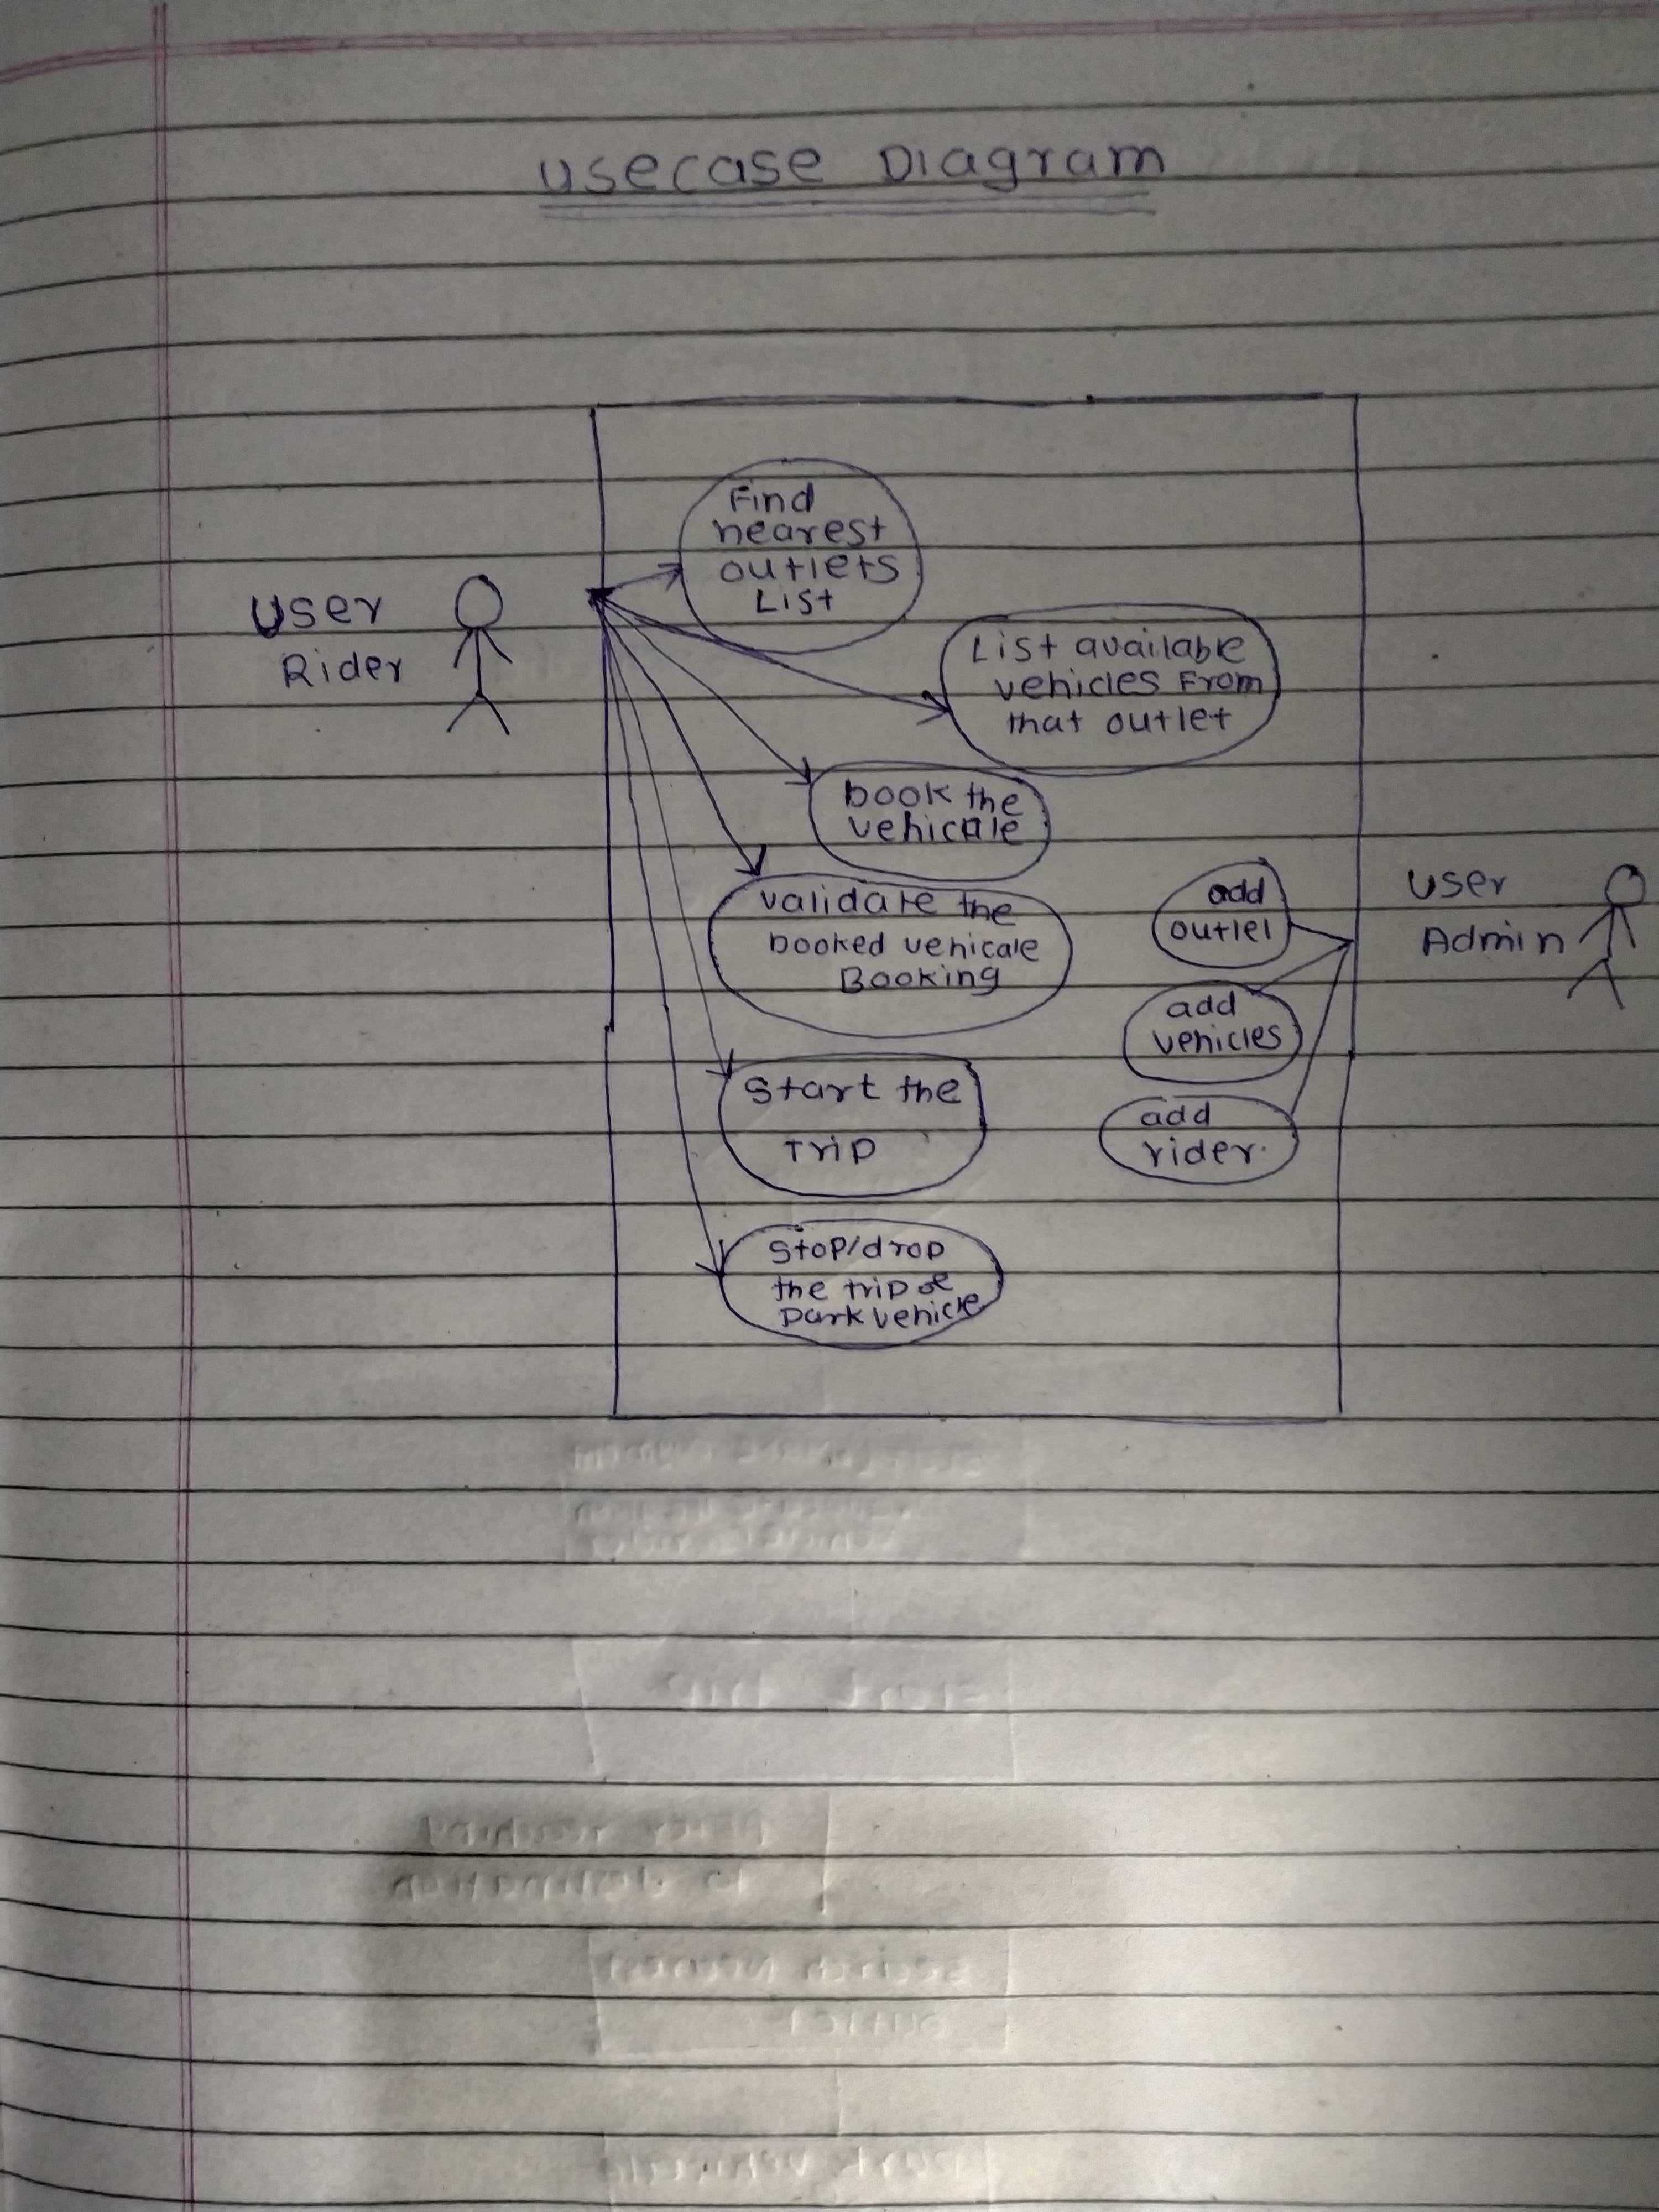 usecase Diagram
User
Rider
Find
nearest
outlets
List
List available
vehicles From
that outlet
book the
vehicale
validate the
booked vehicale
Booking
Start the
Trip
Stop/drop
the trip &
Park vehicle
User
Admin
add
outlet
add
vehicles
add
rider.